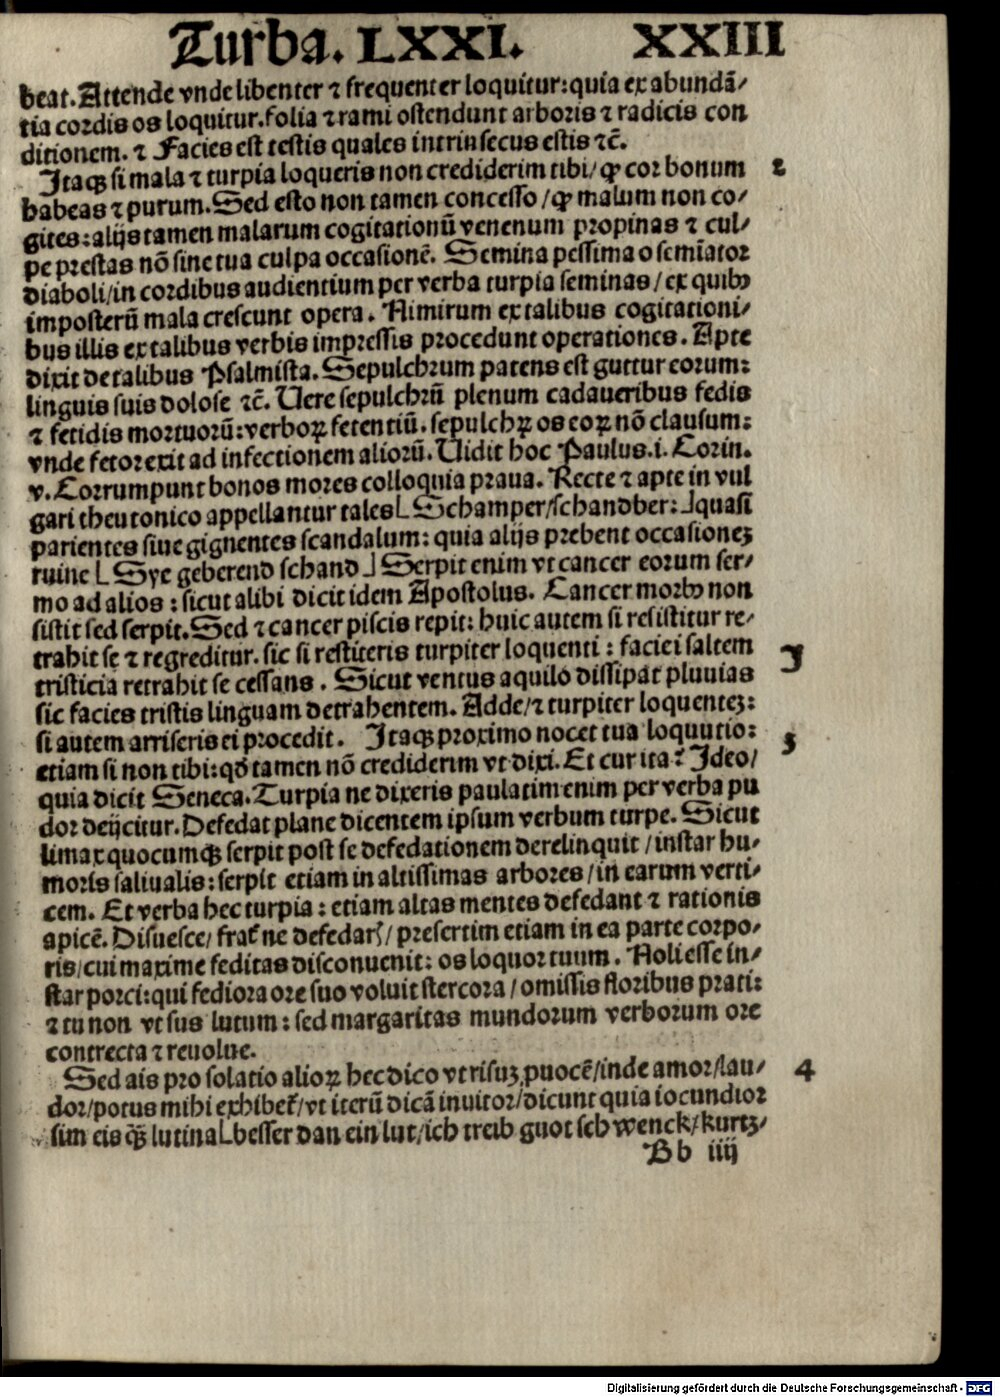 Turba. LXXI. XXIII
beat. Attende vnde libenter ⁊ frequenter loquitur: quia ex abundã/
tia cordis os loquitur. folia ⁊ rami ostendunt arboris ⁊ radicis con
ditionem. ⁊ Facies est testis quales intrinsecus estis ⁊c̃.
Itaqꝫ si mala ⁊ turpia loqueris non crediderim tibi/ ꝙ cor bonum 2
habeas ⁊ purum. Sed esto non tamen concesso/ ꝙ malum non co/
gites: alijs tamen malarum cogitationũ venenum propinas ⁊ cul/
pe prestas nõ sine tua culpa occasionẽ. Semina pessima o semĩator
diaboli/ in cordibus audientium per verba turpia seminas/ ex quibꝰ
imposterũ mala crescunt opera. Nimirum ex talibus cogitationi/
bus illis ex talibus verbis impressis procedunt operationes. Apte
dixit de talibus Psalmista. Sepulchrum patens est guttur eorum:
linguis suis dolose ⁊c̃. Uere sepulchrũ plenum cadaueribus fedis
⁊ fetidis mortuorũ: verboꝝ fetentiũ. sepulchꝝ os eoꝝ nõ clausum:
vnde fetor exit ad infectionem aliorũ. Uidit hoc Paulus. i. Corin.
v. Corrumpunt bonos mores colloquia praua. Recte ⁊ apte in vul
gari theutonico appellantur tales ⌊ Schamper/ schandber: ⌋ quasi
parientes siue gignentes scandalum: quia alijs prebent occasioneꝫ
ruine ⌊ Sye geberend schand ⌋ Serpit enim vt cancer eorum ser/
mo ad alios: sicut alibi dicit idem Apostolus. Cancer morbꝰ non
sistit sed serpit. Sed ⁊ cancer piscis repit: huic autem si resistitur re/
trahit se ⁊ regreditur. sic si restiteris turpiter loquenti: faciei saltem J
tristicia retrahit se cessans. Sicut ventus aquilo dissipat pluuias
sic facies tristis linguam detrahentem. Adde/ ⁊ turpiter loquenteꝫ:
si autem arriseris ei procedit. Itaqꝫ proximo nocet tua loquutio: 3
etiam si non tibi: qđ tamen nõ crediderim vt dixi. Et cur ita? Ideo/
quia dicit Seneca. Turpia ne dixeris paulatim enim per verba pu
dor deijcitur. Defedat plane dicentem ipsum verbum turpe. Sicut
limax quocumqꝫ serpit post se defedationem derelinquit/ instar hu/
moris saliualis: serpit etiam in altissimas arbores/ in earum verti/
cem. Et verba hec turpia: etiam altas mentes defedant ⁊ rationis
apicẽ. Disuesce/ frat̃ ne defedarꝭ/ presertim etiam in ea parte corpo/
ris/ cui maxime feditas disconuenit: os loquor tuum. Noli esse in/
star porci: qui fediora ore suo voluit stercora/ omissis floribus prati:
⁊ tu non vt sus lutum: sed margaritas mundorum verborum ore
contrecta ⁊ reuolue.
Sed ais pro solatio alioꝝ hec dico vt risuꝫ ꝓuocẽ/ inde amor/ lau/ 4
dor/ potus mihi exhibet̃/ vt iterũ dicã inuitor/ dicunt quia iocundior
sim eis ꝙ̃ lutina ⌊ besser dan ein lut/ ich treib guot schwenck/ kurtz/
Bb iiij
Digitalisierung gefördert durch die Deutsche Forschungsgemeinschaft - DFG